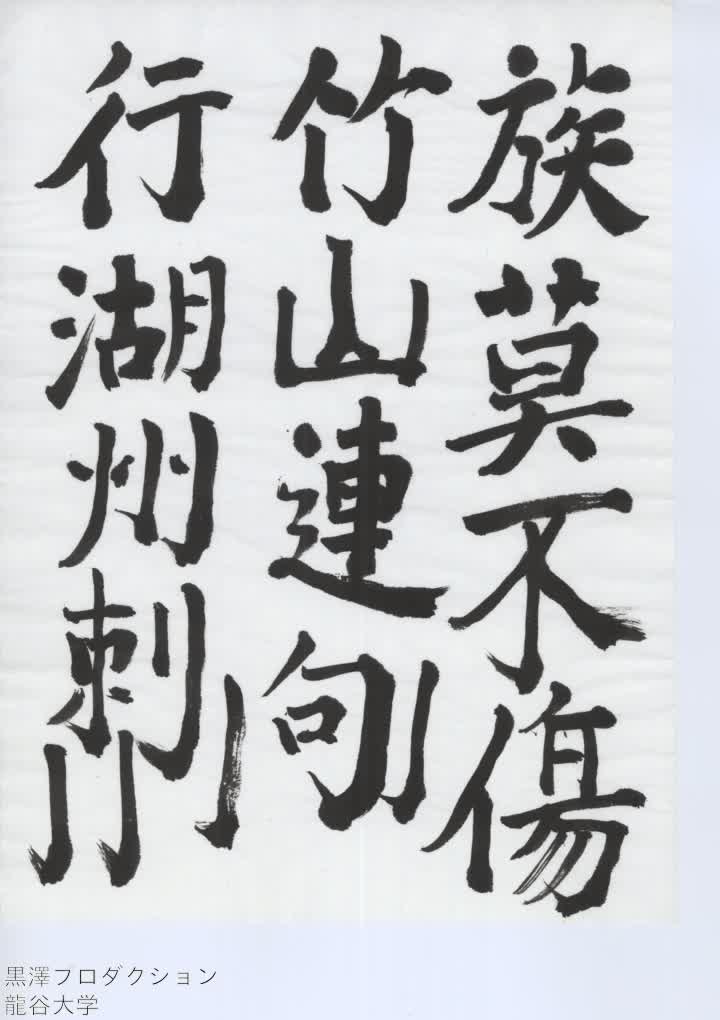 族莫不傷
竹山連句
行湖州刺
黒澤プロダクション
龍谷大学